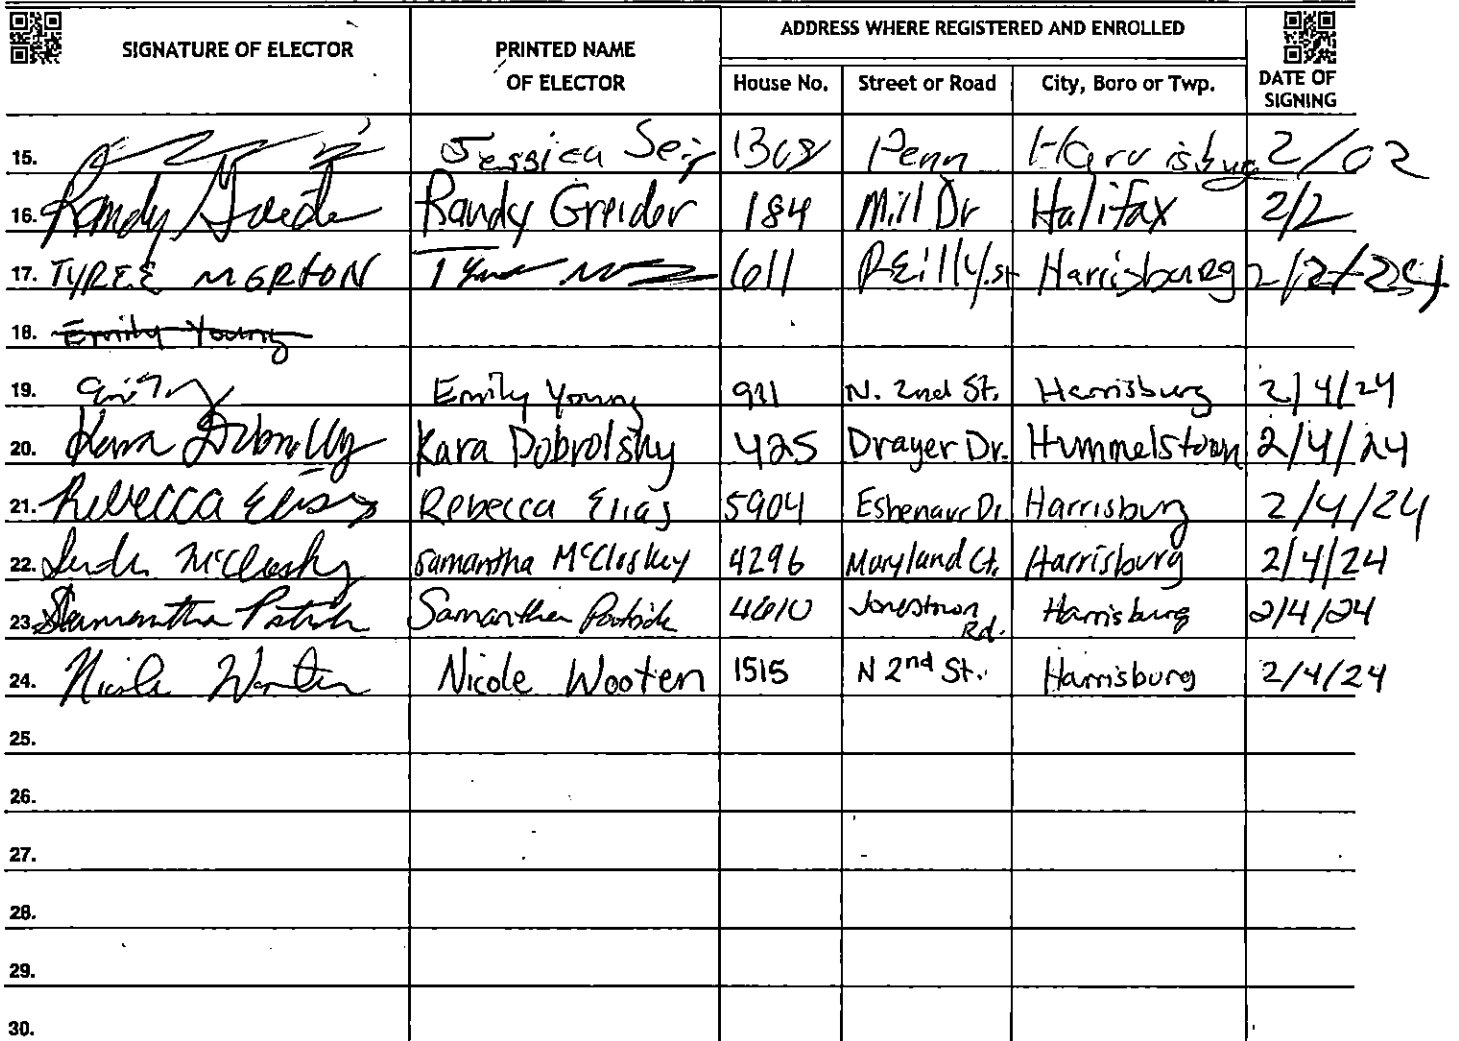 ADDRESS WHERE REGISTERED AND ENROLLED
SIGNATURE OF ELECTOR PRINTED NAME OF ELECTOR House No. Street or Road City, Boro or Twp. DATE OF SIGNING
15. Jessica 1308 Penn Harrisburg 2/02
16. Randy Randy Greider 184 Mill Dr Halifax 2/2
17. TYREE MERTON 611 REilly.st Harrisburg
18. Emily Young
19. Emily Young 911 N. 2nd St. Harrisburg 2/4/24
20. Kara Kara Dobrolsky 425 Drayer Dr. Hummelstown 2/4/24
21. Rebecca Elias Rebecca Elias 5904 Eshenaur Dr. Harrisburg 2/4/24
22. McClosky Samantha McCloskey 4296 Maryland Ct. Harrisburg 2/4/24
23. Samantha Patrick Samantha 4610 Jonestown Rd. Harrisburg 2/4/24
24. Nicole Wooten Nicole Wooten 1515 N 2nd St. Harrisburg 2/4/24
25.
26.
27.
28.
29.
30.